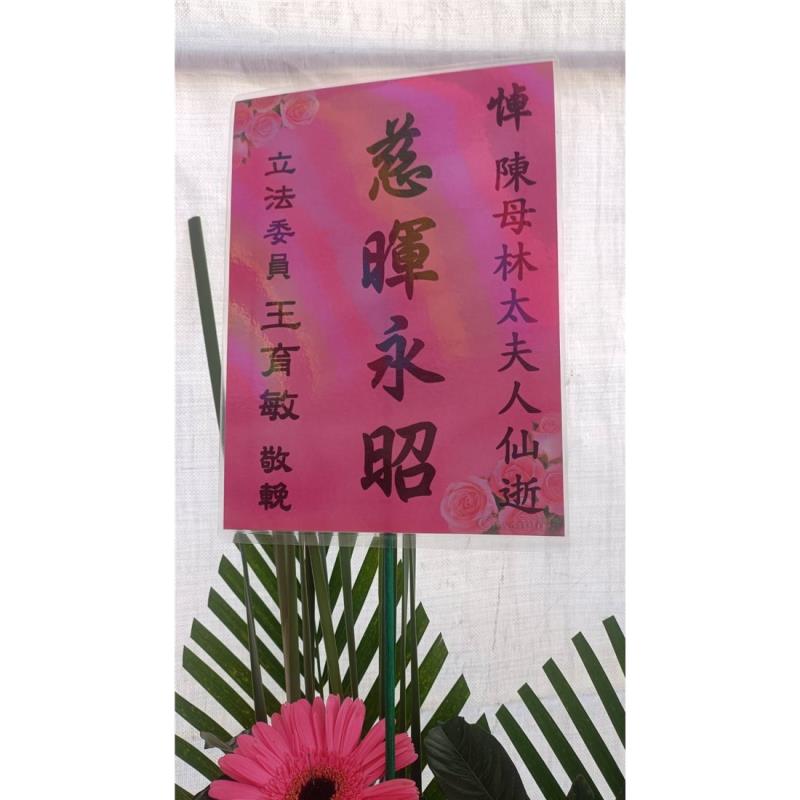 悼 陳母林太夫人仙逝
慈暉永昭
立法委員 王育敏 敬輓